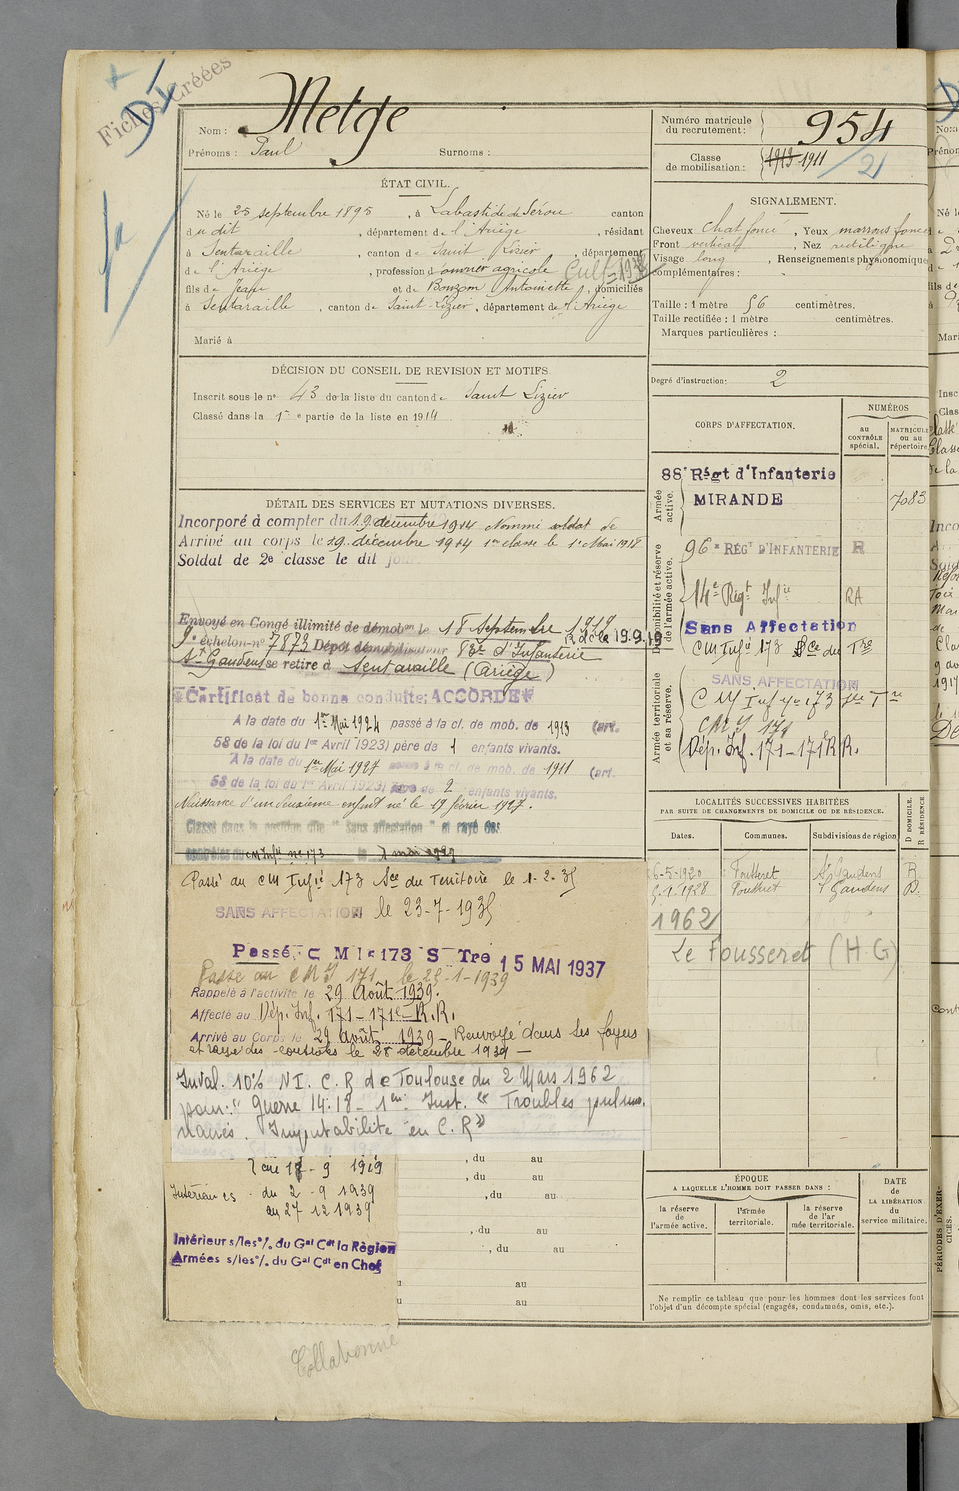 Fiches créées
Nom : Metge
Prénoms : Paul Surnoms :
Numéro matricule du recrutement : 954
Classe de mobilisation : 1913 1911
2
ÉTAT CIVIL.
Né le 25 septembre 1895, à Labastide de Sérou canton
du dit, département de l'Ariège, résidant
à Sentaraille, canton de Saint Lizier, département
de l'Ariège, profession d'ouvrier agricole Cult. 1938
fils de Jean et de Bouzom Antoinette, domiciliés
à Sentaraille, canton de Saint-Lizier, département de l'Ariège
Marié à
SIGNALEMENT.
Cheveux chat foncé, Yeux marrons foncés
Front vertical, Nez rectiligne
Visage long, Renseignements physionomiques
complémentaires :
Taille : 1 mètre 56 centimètres.
Taille rectifiée : 1 mètre centimètres.
Marques particulières :
Degré d'instruction : 2
DÉCISION DU CONSEIL DE REVISION ET MOTIFS
Inscrit sous le n° 43 de la liste du canton de Saint Lizier
Classé dans la 1re partie de la liste en 1914
DÉTAIL DES SERVICES ET MUTATIONS DIVERSES.
Incorporé à compter du 19 décembre 1914 Nommé soldat de
Arrivé au corps le 19 décembre 1914 1re classe le 1er Mai 1918
Soldat de 2e classe le dit jour
Envoyé en Congé illimité de démobon le 18 Septembre 1919
9e échelon n° 7873 Dépôt démobilisateur 83e d'Infanterie
St Gaudens se retire à Sentaraille (Ariège)
Certificat de bonne conduite: ACCORDÉ
A la date du 1er Mai 1924 passé à la cl. de mob. de 1913 (art.
58 de la loi du 1er Avril 1923) père de 1 enfants vivants.
A la date du 1er Mai 1927 passé à la cl. de mob. de 1911 (art.
58 de la loi du 1er Avril 1923) père de 2 enfants vivants.
Naissance d'un deuxième enfant né le 19 février 1927.
Classé dans la position dite "Sans affectation" et rayé des
contrôles du CM Infie n° 173 le 1 mai 1929
Passé au CM Infie 173 Sce du Territoire le 1-2-35
SANS AFFECTATION le 23-7-1935
Passé C M I 173 S Tre 15 MAI 1937
Passé au CMI 171 le 25-1-1939
Rappelé à l'activité le 29 Août 1939.
Affecté au Dép. Inf. 171 - 171e R.R.
Arrivé au Corps le 29 août 1939 - Renvoyé dans ses foyers
et rayé des contrôles le 28 décembre 1939 -
Inval. 10% NI. C.R de Toulouse du 2 Mars 1962
pour: "Guerre 14-18 - 1ere Inst. "Troubles pulmo-
naires. Imputabilité en C.R"
Intérieur cs - du 2 - 9 1939
au 27 12 1939
Intérieur s/les o/. du Gal Cdt la Région
Armées s/les o/. du Gal Cdt en Chef
, du au
, du au
, du au
, du au
, du au
au
au
Collationné
CORPS D'AFFECTATION.
NUMÉROS
au CONTRÔLE spécial.
MATRICULE ou au répertoire.
Armée active.
88e Régt d'Infanterie
MIRANDE 7083
Disponibilité et réserve de l'armée active.
96e RÉGT D'INFANTERIE R
14e Régt Infie RA
Sans Affectation
CM Infie 173 Sce du Tre
Armée territoriale et sa réserve.
SANS AFFECTATION
CM Inf ie 173 Sce Tre
CMI 171
Dép. Inf. 171 - 171e R.R.
LOCALITÉS SUCCESSIVES HABITÉES
PAR SUITE DE CHANGEMENTS DE DOMICILE OU DE RÉSIDENCE.
Dates. Communes. Subdivisions de région D DOMICILE. R RÉSIDENCE
6-5-1920 Fousseret St Gaudens R.
5-1-1928 Fousseret St Gaudens D.
1962
Le Fousseret (H G)
ÉPOQUE
A LAQUELLE L'HOMME DOIT PASSER DANS :
la réserve de l'armée active.
l'armée territoriale.
la réserve de l'armée territoriale.
DATE de LA LIBÉRATION du service militaire.
Ne remplir ce tableau que pour les hommes dont les services font
l'objet d'un décompte spécial (engagés, condamnés, omis, etc.).
PÉRIODES D'EXERCICES.